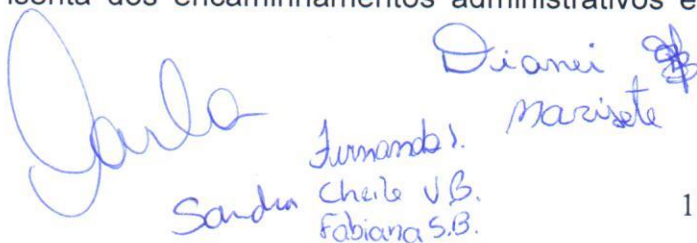 isenta dos encaminhamentos administrativos e
Carla
Dianei
Marizete
Fernanda S.
Sandra Cheile V.B.
Fabiana S.B.
1